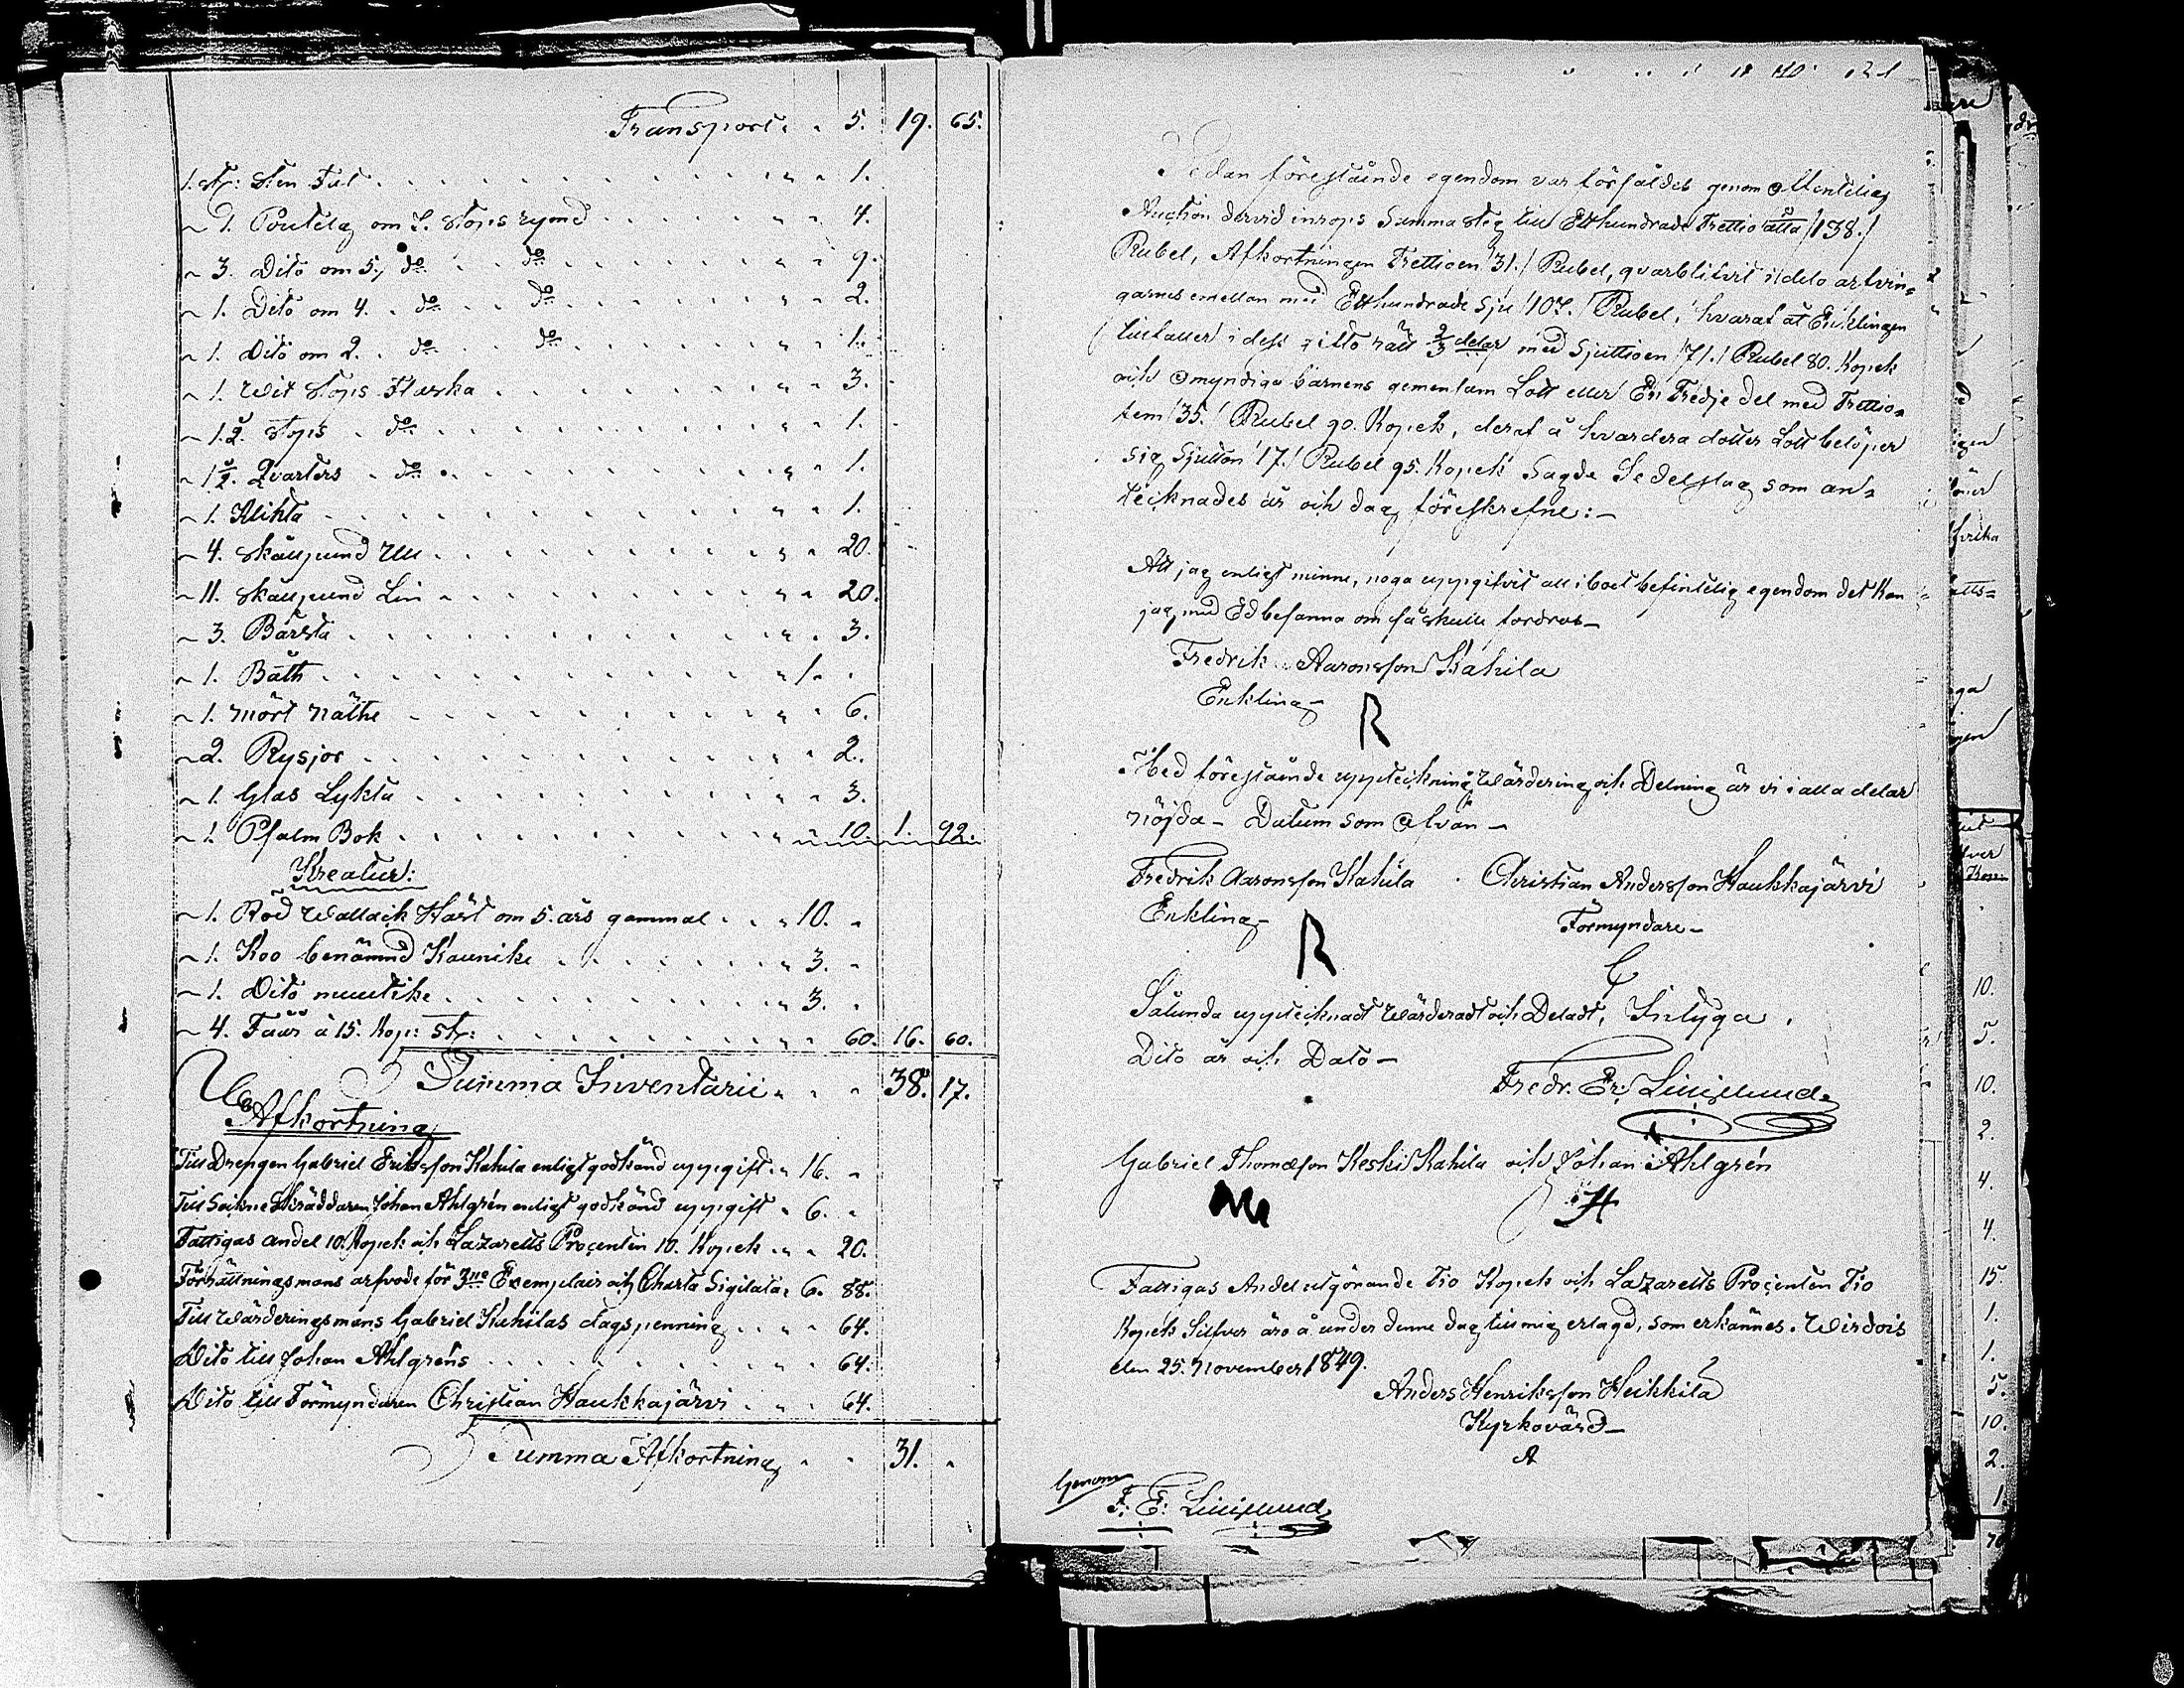 Transport 5. 19. 65.
1. st: Sten Fat 1.
1. Bouteleg om 7. Stops rymd 4.
3. Dito om 5. do do 9.
1. Dito om 4. do do 2.
1. Dito om 2. do do 1.
1. Wit Stops Flaska 3.
1. 2. Stops do 1.
1. 2. Qvarters do 1.
1. Klikta 1.
4. Skålpund Ull 20.
11. Skålpund Lin 20.
3. Bårsta 3.
1. Båth 1.
1. Mört Näthe 6.
2. Rysjor 2.
1. Glas Lykta 3.
1. Psalm Bok 10. 1. 92.
Kreatur:
1. Röd Wallack Häst om 5. års gammal 10.
1. Koo benämnd Kaunike 3.
1. Dito muutike 3.
4. Fåår à 15. Kop: St: 60. 16. 60.
Summa Inventarii 38. 17.
Afkortning
Till Drengen Gabriel Eriksson Kahila enligt godkänd uppgift 16.
Till Sockne Skräddaren Johan Ahlgrén enligt godkänd uppgift 6.
Fattigas andel 10. Kopek och Lazaretts Procenten 10. Kopek 20.
Förrättningsmans arfvode för 3ne Exemplair och Charta Sigilata 6. 88.
Till Wärderingsmans Gabriel Kahilas dagspenning 64.
Dito till Johan Ahlgréns 64.
Dito till Förmyndaren Christian Haukkajärvi 64.
Summa Afkortning 31.
Sedan föreståènde egendom var försåldes genom offentelig
Auction dervid inrops Summa steg till Etthundrade Trettio åtta /138./
Rubel, Afkortningen Trettioen /31./ Rubel, qvarblifvit i delo arfvin=
garnes emellan med Etthundrade Sju /107./ Rubel, hvaraf åt Enklingen
tillfaller i dess gifto rätt 2/3 delar med Sjuttioen /71./ Rubel 80. Kopek
och Omyndiga barnens gemensam Lott eller En Tredje del med Trettio=
fem /35./ Rubel 90. Kopek, deraf å hvardera dotter Lott belöper
sig Sjutton /17./ Rubel 95. Kopek Sagde Sedelslag som an=
tecknades år och dag föreskrefne:
Att jag enligt minne, noga uppgifvit all i boet befintelig egendom det kan
jag med Ed besanna om så skulle fordras
Fredrik Aaronsson Kahila
Enkling
R
Med föreståènde uppteckning Wärdering och Delning är vi i alla delar
nöjda Datum som Ofvan
Fredrik Aaronsson Kahila Christian Andersson Haukkajärvi
Enkling Förmyndare
R
Sålunda upptecknadt Wärderadt och Deladt, Intyga
Dito år och Dato
Fredr. Er: Lilljelund
Gabriel Thomæson Keski Kahila och Johan Ahlgrén
Fattigas Andel utgörande Tio Kopek och Lazaretts Procenten Tio
Kopek Silfver äro å under denne dag till mig erlagd, som erkännes. Wirdois
den 25. November 1849.
Anders Henriksson Heikkilä
Kyrkovärd
A
Genom
F: E: Lilljelund